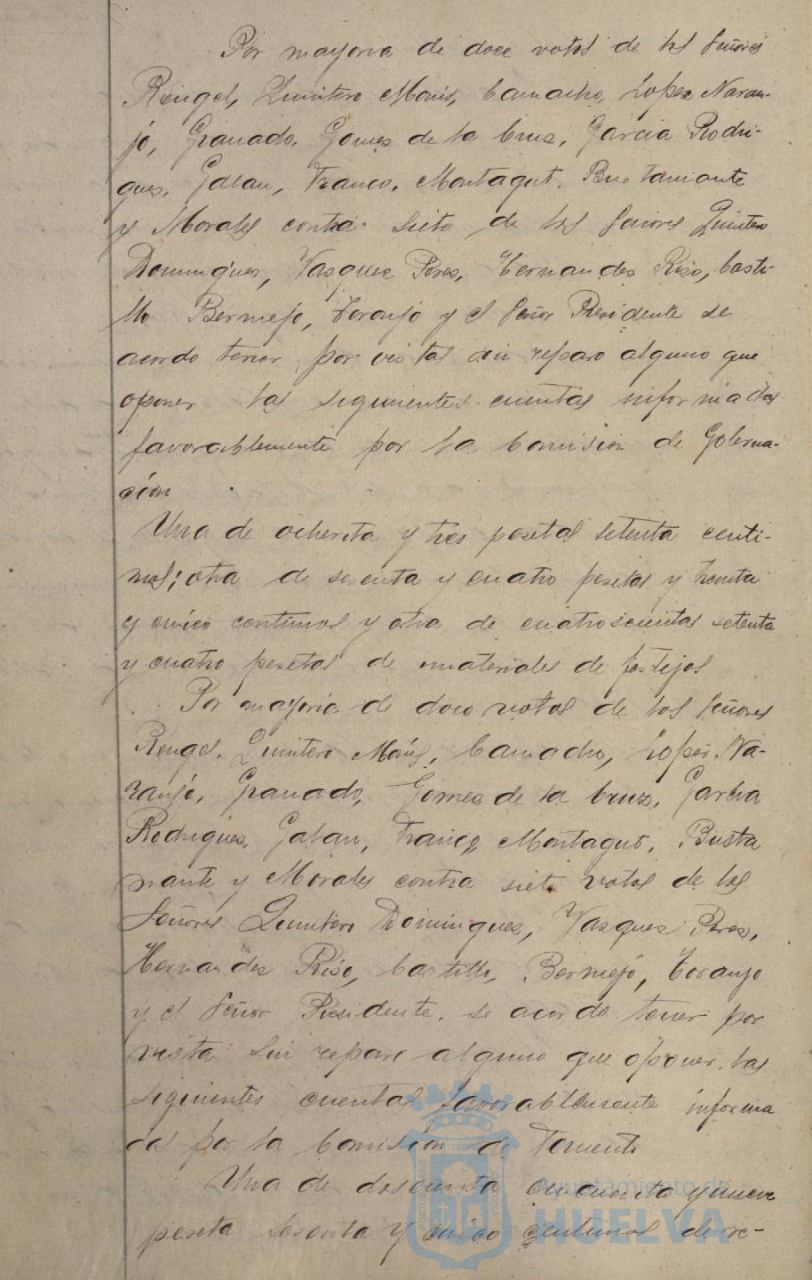 Por mayoria de doce votos de los Señores
Rengel, Quintero Maris, Camacho, Lopez Naran-
jo, Granado, Gomes de la Cruz, Garcia Rodri-
gues, Galan, Franco, Montagut, Bustamante
y Morales contra siete de los Señores Quintero
Domingues, Vasquez Peres, Hernandes Riso, Casti-
llo Bermejo, Toranjo y el Señor Presidente se
acordo tener por vistas sin reparo alguno que
oponer las siguientes cuentas informadas
favorablemente por la Comision de Goberna-
cion
Una de ochenta y tres pesetas setenta centi-
mos; otra de sesenta y cuatro pesetas y treinta
y cinco centimos y otra de cuatroscientas setenta
y cuatro pesetas de materiales de festejos
Por mayoria de doce votos de los Señores
Rengel, Quintero Maris, Camacho, Lopes Na-
ranjo, Granado, Gomes de la Cruz, Garcia
Rodrigues, Galan, Franco, Montagut, Busta
mante y Morales contra siete votos de los
Señores Quintero Domingues, Vasques Peres,
Hernandes Riso, Castillo, Bermejo, Toranjo
y el Señor Presidente, se acordo tener por
vista sin reparo alguno que oponer las
siguientes cuentas favorablemente informa
das por la Comision de Fomento
Una de doscientas cincuenta y nueve
peseta sesenta y cinco centimos de re-
Ayuntamiento de
HUELVA